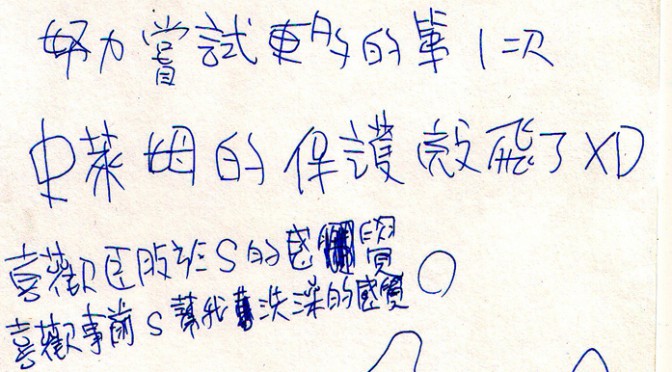 努力嘗試更多的第1次
史萊姆的保護殼飛了XD
喜歡 S的感覺
喜歡事前S幫我洗澡的感覺